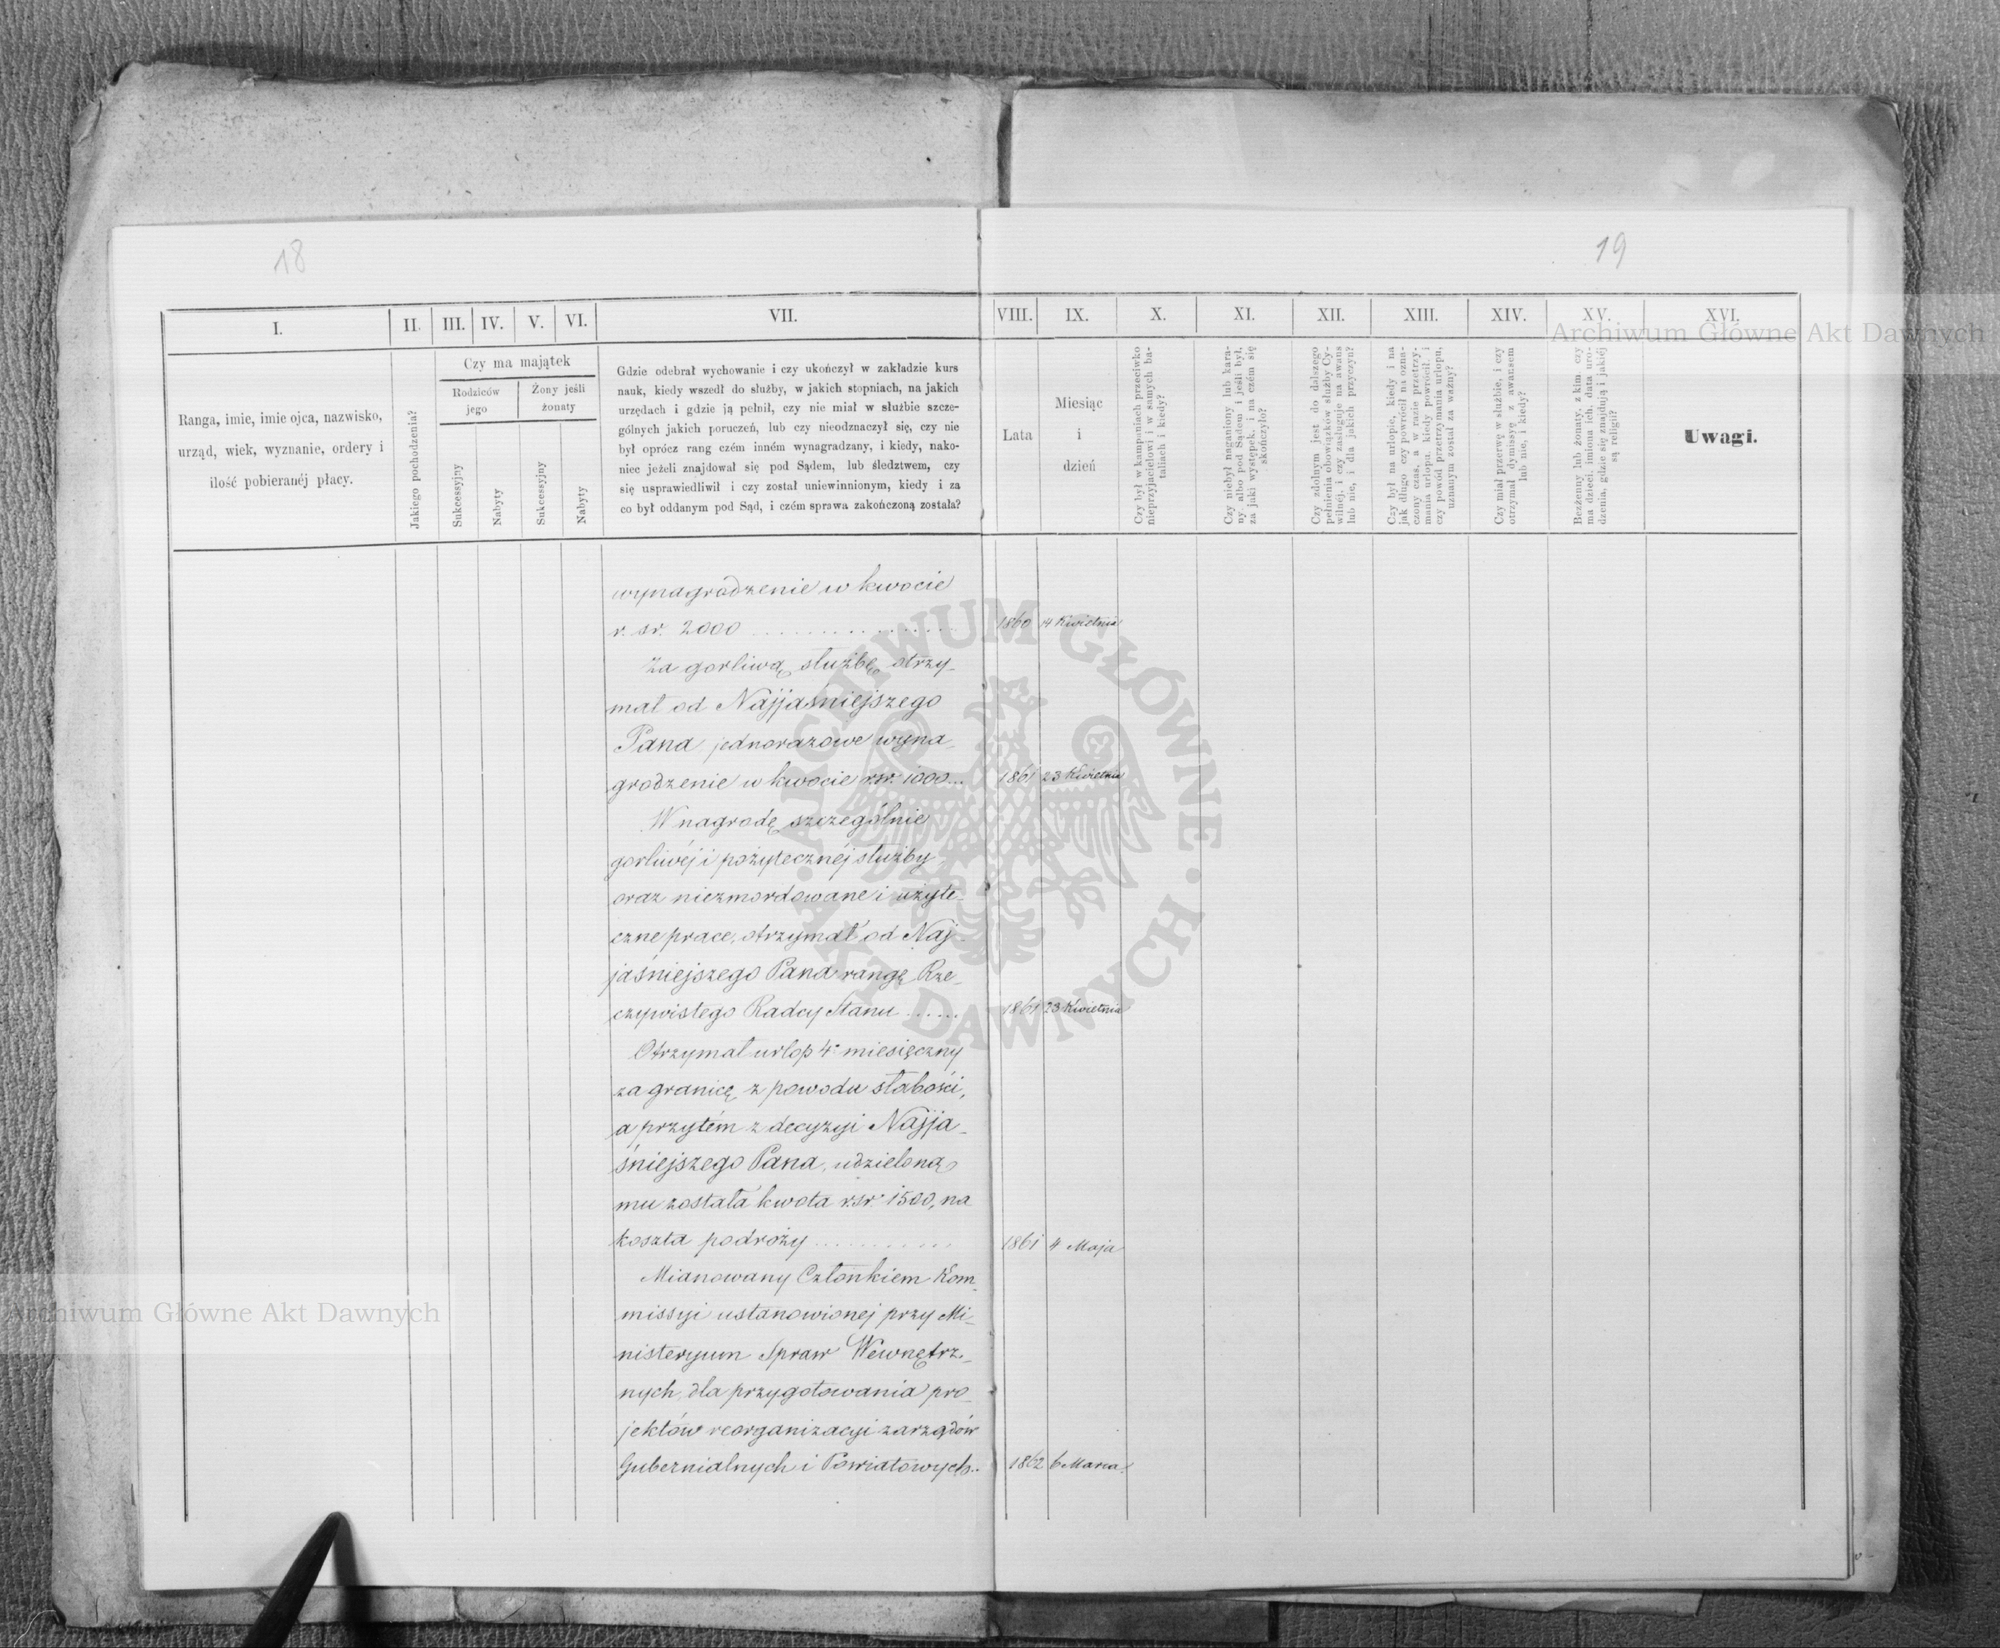 18
19
I.
II.
III.
IV.
V.
VI.
VII.
VIII.
IX.
X.
XI.
XII.
XIII.
XIV.
XV.
XVI.
Ranga, imie, imie ojca, nazwisko,
urząd, wiek, wyznanie, ordery i
ilość pobieranéj płacy.
Jakiego pochodzenia?
Czy ma majątek
Rodziców
jego
Żony jeśli
żonaty
Sukcessyjny
Nabyty
Sukcessyjny
Nabyty
Gdzie odebrał wychowanie i czy ukończył w zakładzie kurs
nauk, kiedy wszedł do służby, w jakich stopniach, na jakich
urzędach i gdzie ją pełnił, czy nie miał w służbie szcze-
gólnych jakich poruczeń, lub czy nieodznaczył się, czy nie
był oprócz rang czém inném wynagradzany, i kiedy, nako-
niec jeżeli znajdował się pod Sądem, lub śledztwem, czy
się usprawiedliwił i czy został uniewinnionym, kiedy i za
co był oddanym pod Sąd, i czém sprawa zakończoną została?
Lata
Miesiąc
i
dzień
Czy był w kampaniach przeciwko
nieprzyjacielowi i w samych ba-
taliach i kiedy?
Czy niebył naganiony lub kara-
ny albo pod Sądem i jeśli był,
za jaki występek, i na czém się
skończyło?
Czy zdolnym jest do dalszego
pełnienia obowiązków służby Cy-
wilnéj, i czy zasługuje na awans
lub nie, i dla jakich przyczyn?
Czy był na urlopie, kiedy i na
jak długo czy powrócił na ozna-
czony czas, a w razie przetrzy-
mania urlopu, kiedy powrócił, i
czy powód przetrzymania urlopu,
uznanym został za ważny?
Czy miał przerwę w służbie, i czy
otrzymał dymissyę z awansem
lub nie, i kiedy?
Bezżenny lub żonaty, z kim, czy
ma dzieci, imiona ich, data uro-
dzenia, gdzie się znajdują i jakiéj
są religii?
Uwagi.
wynagrodzenie w kwocie
r. sr. 2000 ............... 1860 14 Kwietnia
Za gorliwą służbę, otrzy-
mał od Najjaśniejszego
Pana jednorazowe wyna-
grodzenie w kwocie r.sr. 1000... 1861 23 Kwietnia
W nagrodę szczególnie
gorliwéj i pożytecznéj służby
oraz niezmordowane i użyte-
czne prace, otrzymał od Naj-
jaśniejszego Pana rangę Rze-
czywistego Radcy Stanu ...... 1861 23 Kwietnia
Otrzymał urlop 4 miesięczny
za granicę z powodu słabości,
a przytém z decyzyi Najja-
śniejszego Pana, udzieloną
mu została kwota r.sr. 1500, na
koszta podróży ............ 1861 4 Maja
Mianowany Członkiem Kom-
missyi ustanowionej przy Mi-
nisteryum Spraw Wewnętrz-
nych, dla przygotowania pro-
jektów reorganizacyi zarządów
Gubernialnych i Powiatowych.. 1862 6 Marca.
Archiwum Główne Akt Dawnych
Archiwum Główne Akt Dawnych
ARCHIWUM GŁÓWNE AKT DAWNYCH